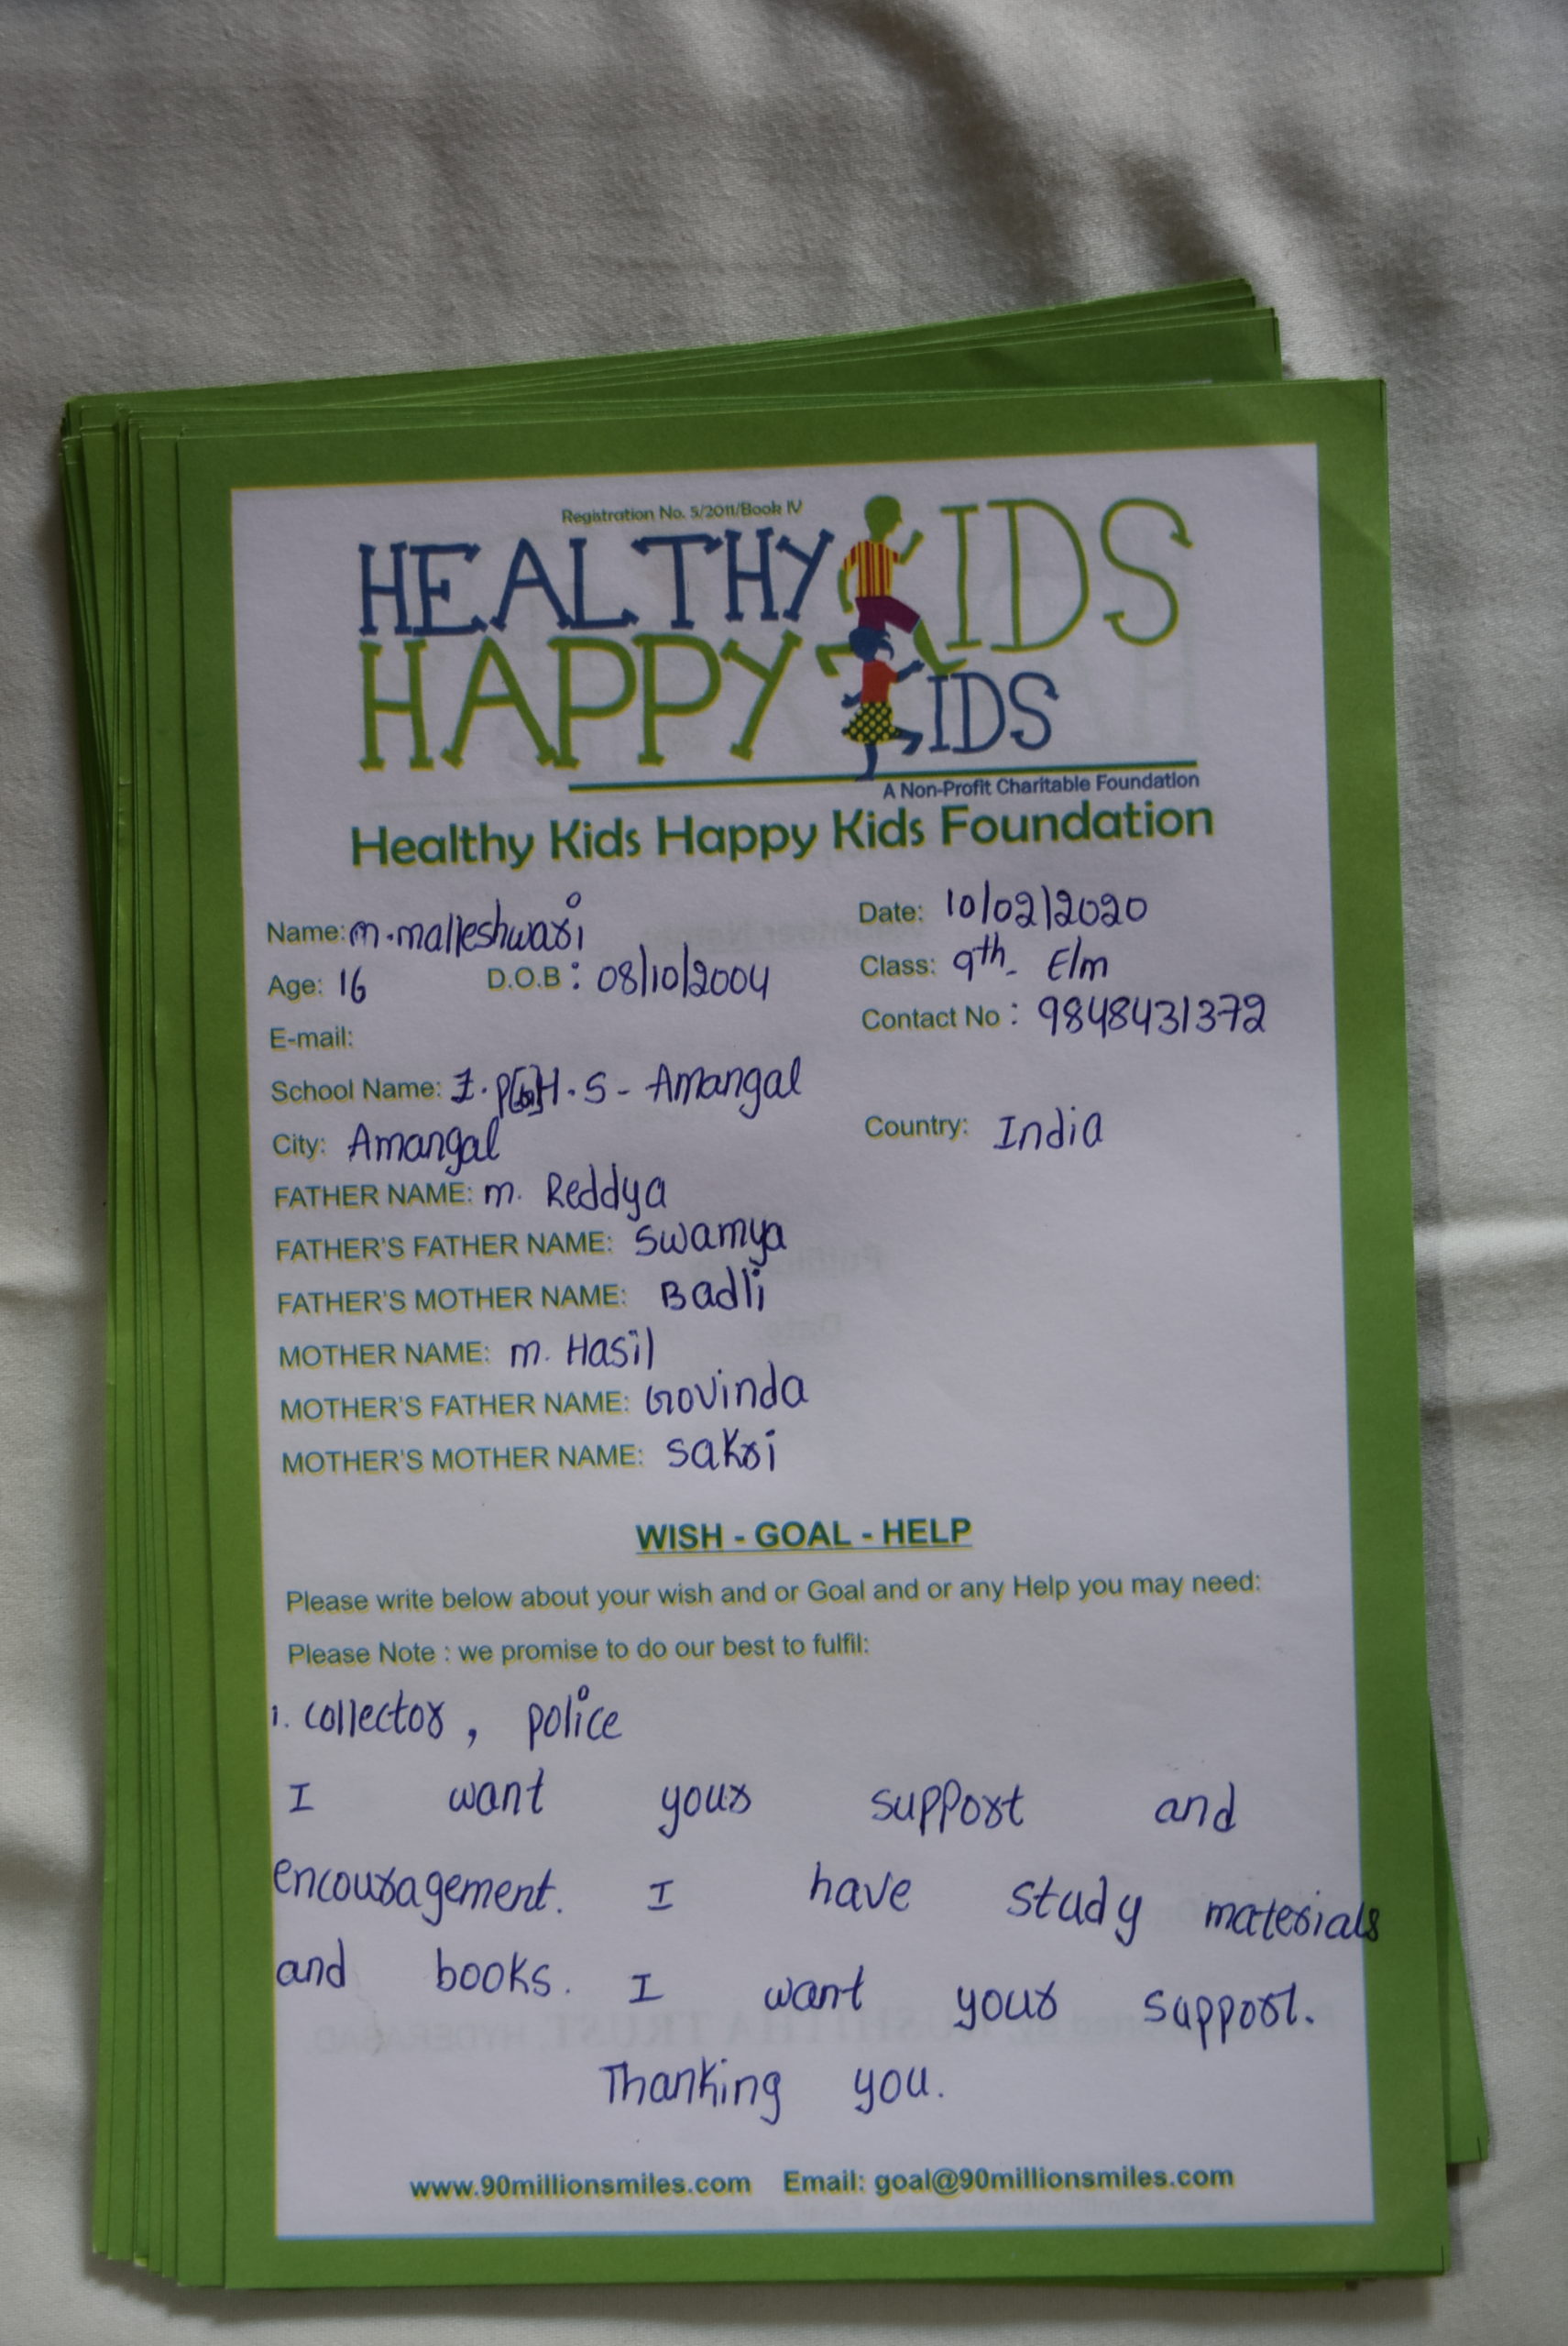 Registration No. 5/2011/Book IV
HEALTHY KIDS
HAPPY KIDS
A Non-Profit Charitable Foundation
Healthy Kids Happy Kids Foundation
Name: m.malleshwari Date: 10/02/2020
Age: 16 D.O.B : 08/10/2004 Class: 9th - E/m
E-mail: Contact No : 9848431372
School Name: H.S - Amangal
City: Amangal Country: India
FATHER NAME: m. Reddya
FATHER'S FATHER NAME: Swamya
FATHER'S MOTHER NAME: Badli
MOTHER NAME: m. Hasil
MOTHER'S FATHER NAME: Govinda
MOTHER'S MOTHER NAME: Sakri
WISH - GOAL - HELP
Please write below about your wish and or Goal and or any Help you may need:
Please Note : we promise to do our best to fulfil:
1. collector, police
I want your support and
encouragement. I have study materials
and books. I want your support.
Thanking you.
www.90millionsmiles.com Email: goal@90millionsmiles.com